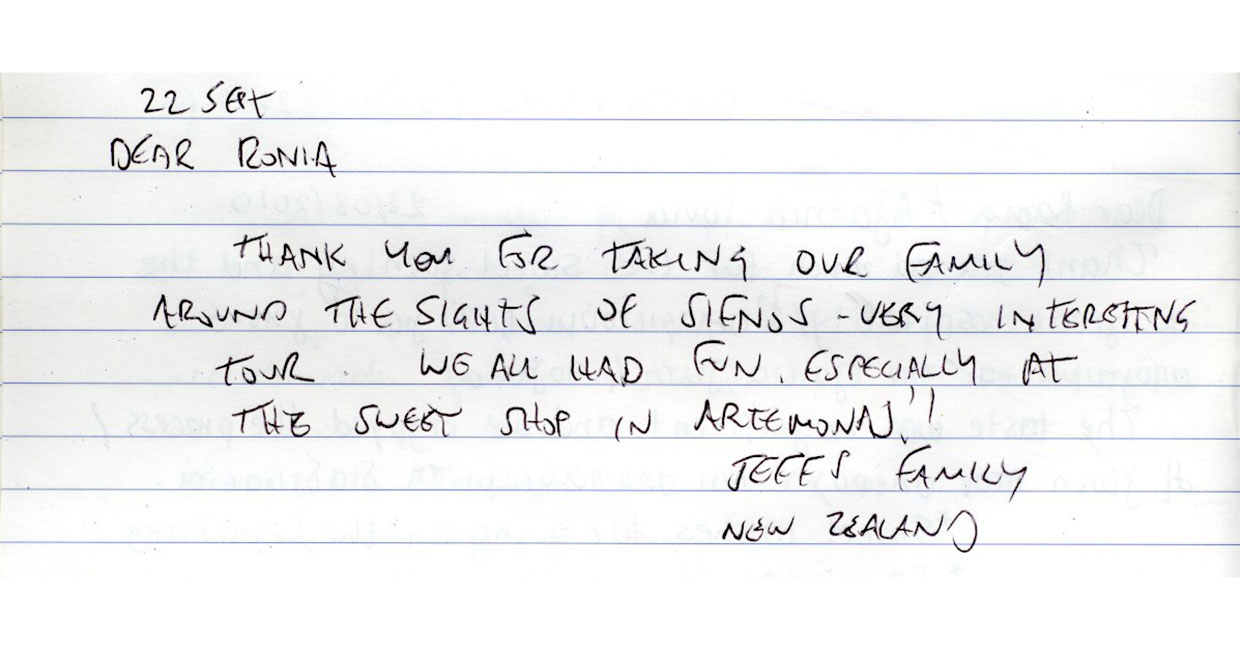 22 SEPT
DEAR RONIA
THANK YOU FOR TAKING OUR FAMILY
AROUND THE SIGHTS OF SIFNOS - VERY INTERESTING
TOUR WE ALL HAD FUN, ESPECIALLY AT
THE SWEET SHOP IN ARTEMONAS!!
JEFFS FAMILY
NEW ZEALAND